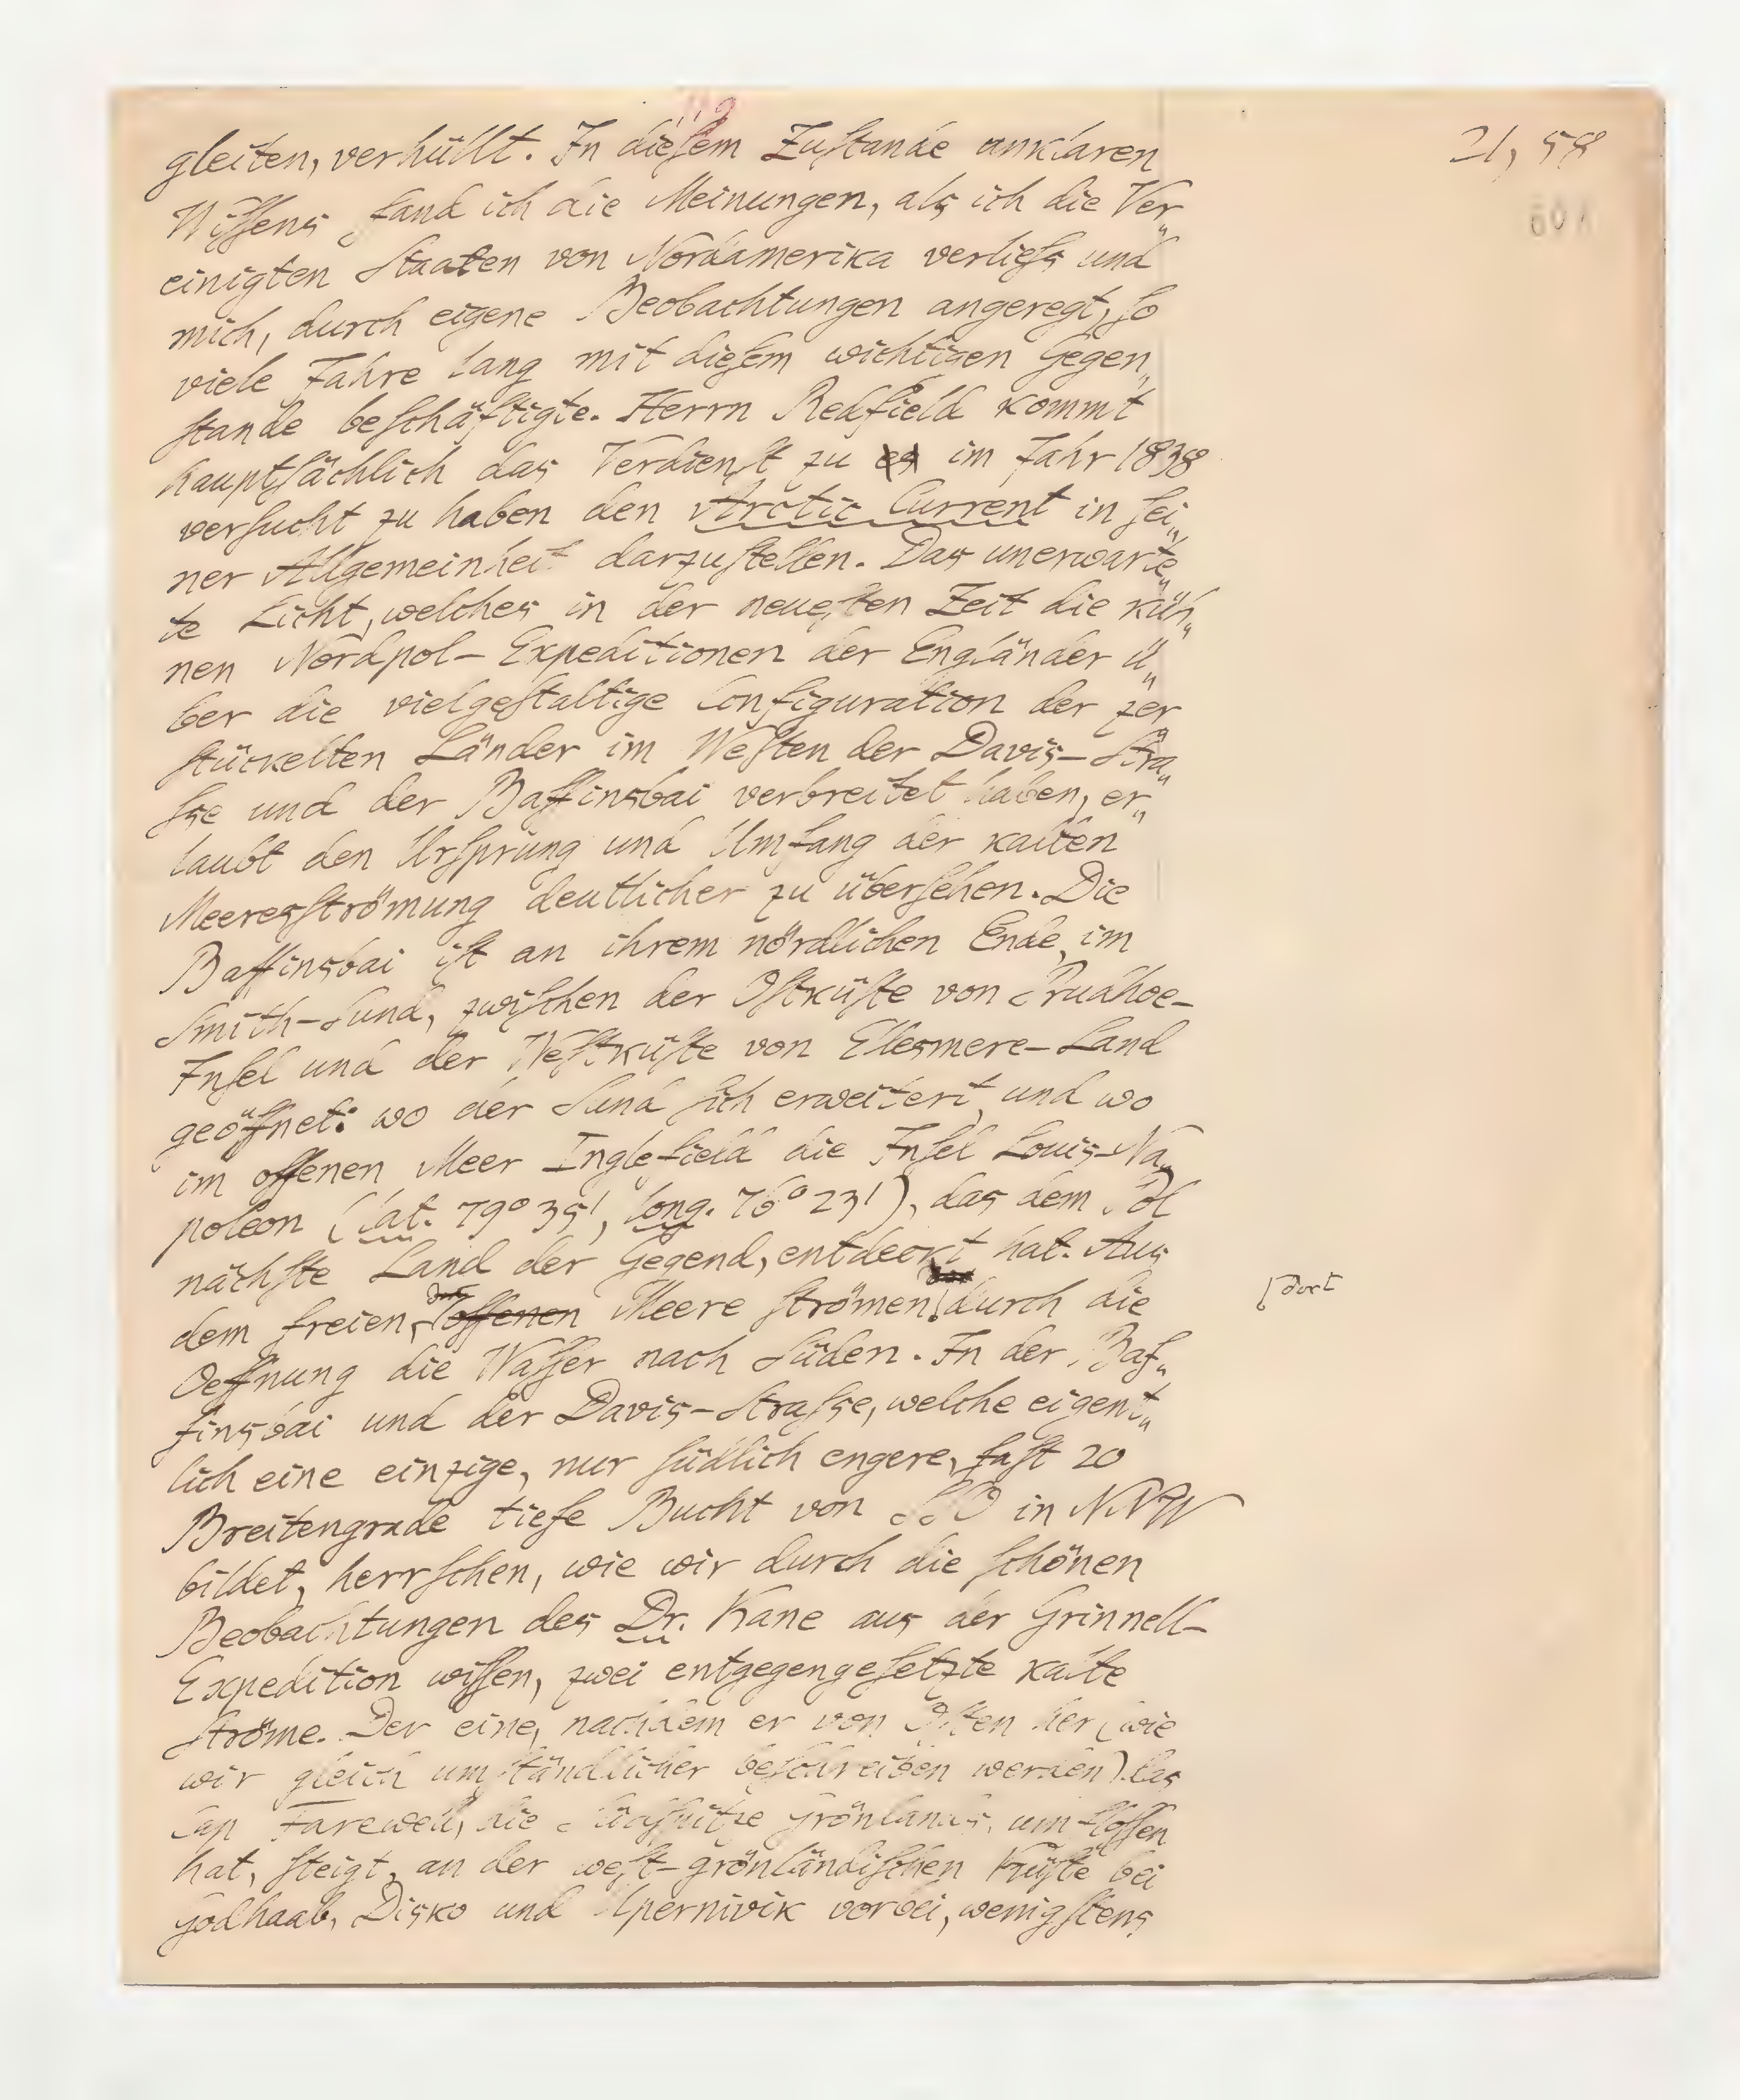 21, 58
gleiten, verhüllt. In dieſem Zuſtande unklaren
Wiſſens fand ich die Meinungen, als ich die Ver„
einigten Staaten von Nordamerika verlieſs und
mich, durch eigene Beobachtungen angeregt, ſo
viele Jahre lang mit dieſem wichtigen Gegen„
ſtande beſchäftigte. Herrn Redfield kommt
hauptſächlich das Verdienſt zu es im Jahr 1838
verſucht zu haben den Arctic Current in ſei„
ner Allgemeinheit darzuſtellen. Das unerwarte„
te Licht, welches in der neueſten Zeit die küh„
nen Nordpol-Expeditionen der Engländer ü„
ber die vielgeſtaltige Configuration der zer„
ſtückelten Länder im Weſten der Davis-Stra„
ſse und der Baffinsbai verbreitet haben, er„
laubt den Urſprung und Umfang der kalten
Meeresſtrömung deutlicher zu überſehen. Die
Baffinsbai iſt an ihrem nördlichen Ende, im
Smith-Sund, zwiſchen der Oſtküſte von Prudhoe-
Inſel und der Weſtküſte von Ellesmere-Land
geöffnet: wo der Sund ſich erweitert, und wo
im offenen Meer Inglefield die Inſel Louis-Na„
poleon (lat. 79° 35', long. 76° 23'), das dem Pol
nächſte Land der Gegend, entdeckt hat. Aus
dem freien, offenen Meere ſtrömen durch die
dort
Oeffnung die Waſſer nach Süden. In der Baf„
finsbai und der Davis-Straſse, welche eigent„
lich eine einzige, nur ſüdlich engere, faſt 20
Breitengrade tiefe Bucht von SSO in NNW
bildet, herrſchen, wie wir durch die ſchönen
Beobachtungen des Dr. Kane aus der Grinnell-
Expedition wiſſen, zwei entgegengeſetzte kalte
Ströme. Der eine, nachdem er von Oſten her (wie
wir gleich umſtändlicher beſchreiben werden) das
Cap Farewell, die Südſpitze Grönlands, umfloſſen
hat, ſteigt, an der weſt-grönländiſchen Küſte bei
Godhaab, Disko und Upernivik vorbei, wenigſtens